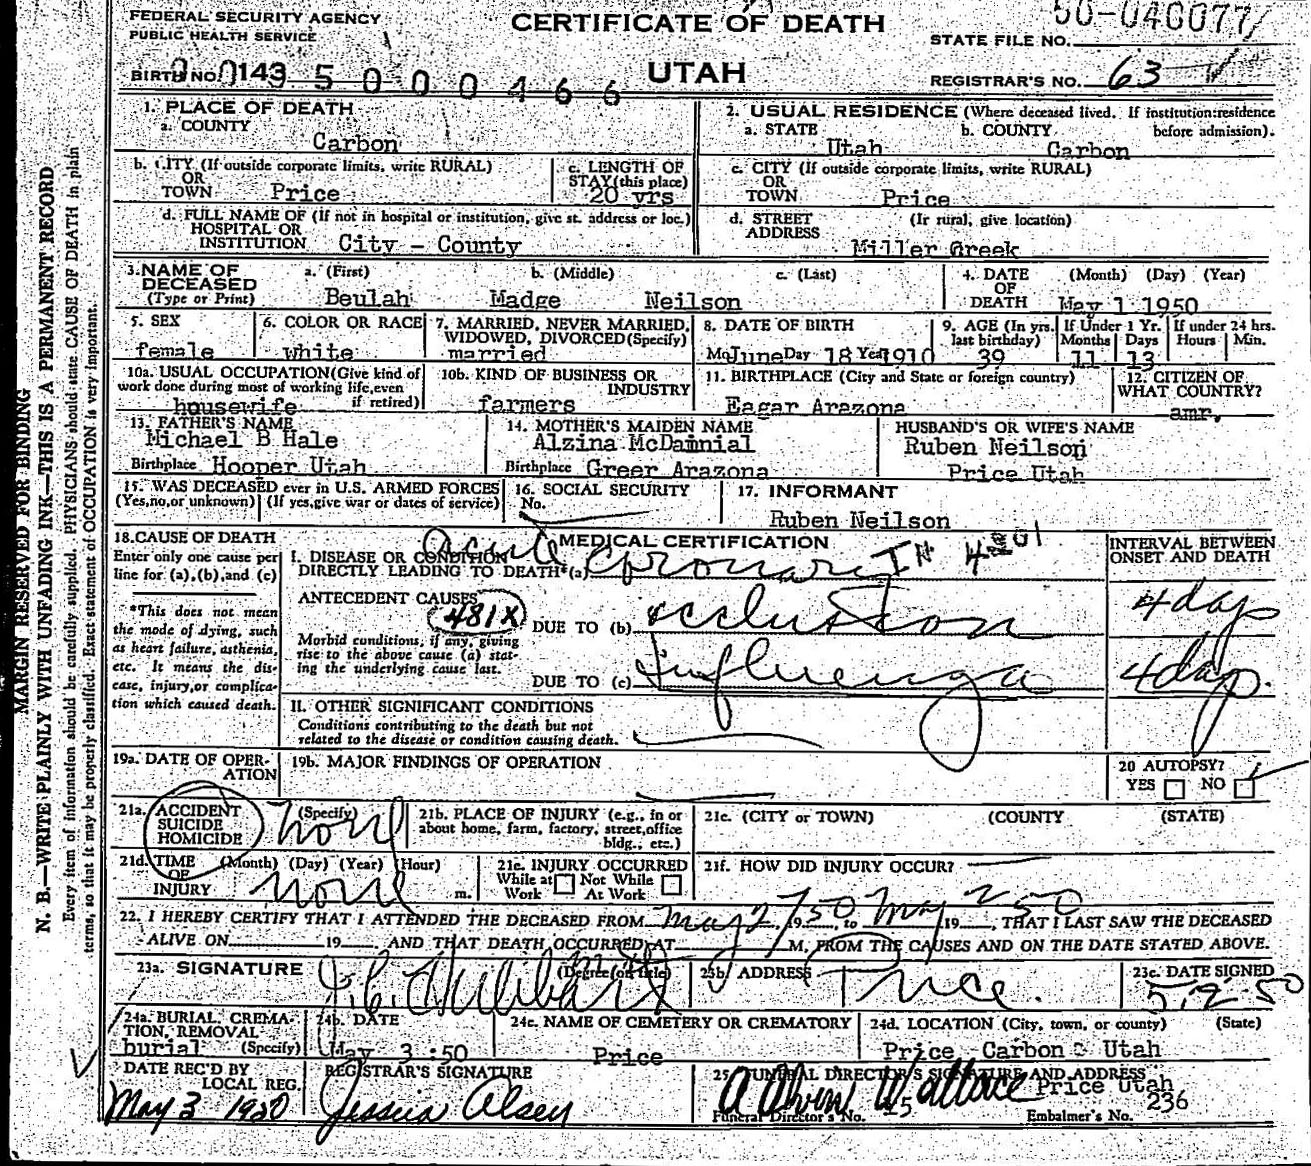 FEDERAL SECURITY AGENCY
PUBLIC HEALTH SERVICE
CERTIFICATE OF DEATH
UTAH
STATE FILE NO.
BIRTH NO. 0143 5 0 0 0 4 6 6
REGISTRAR'S NO. 63
MARGIN RESERVED FOR BINDING
N. B.—WRITE PLAINLY WITH UNFADING INK—THIS IS A PERMANENT RECORD
Every item of information should be carefully supplied. PHYSICIANS should state CAUSE OF DEATH in plain
terms, so that it may be properly classified. Exact statement of OCCUPATION is very important.
1. PLACE OF DEATH
a. COUNTY
Carbon
2. USUAL RESIDENCE (Where deceased lived. If institution:residence
a. STATE b. COUNTY before admission).
Utah Carbon
b. CITY (If outside corporate limits, write RURAL)
OR
TOWN Price
c. LENGTH OF
STAY (this place)
20 yrs
c. CITY (If outside corporate limits, write RURAL)
OR
TOWN Price
d. FULL NAME OF (If not in hospital or institution, give st. address or loc.)
HOSPITAL OR
INSTITUTION City - County
d. STREET (If rural, give location)
ADDRESS
Miller Creek
3. NAME OF
DECEASED
(Type or Print)
a. (First) b. (Middle) c. (Last)
Beulah Madge Neilson
4. DATE (Month) (Day) (Year)
OF
DEATH May 1 1950
5. SEX
female
6. COLOR OR RACE
white
7. MARRIED, NEVER MARRIED,
WIDOWED, DIVORCED(Specify)
married
8. DATE OF BIRTH
Mo June Day 18 Year 1910
9. AGE (In yrs. last birthday)
39
If Under 1 Yr.
Months Days
11 13
If under 24 hrs.
Hours Min.
10a. USUAL OCCUPATION(Give kind of
work done during most of working life, even
if retired)
housewife
10b. KIND OF BUSINESS OR
INDUSTRY
farmers
11. BIRTHPLACE (City and State or foreign country)
Eagar Arazona
12. CITIZEN OF
WHAT COUNTRY?
amr.
13. FATHER'S NAME
Michael B Hale
Birthplace Hooper Utah
14. MOTHER'S MAIDEN NAME
Alzina McDainial
Birthplace Greer Arazona
HUSBAND'S OR WIFE'S NAME
Ruben Neilson
Price Utah
15. WAS DECEASED ever in U.S. ARMED FORCES
(Yes, no, or unknown) (If yes, give war or dates of service)
16. SOCIAL SECURITY
No.
17. INFORMANT
Ruben Neilson
18. CAUSE OF DEATH
Enter only one cause per
line for (a), (b), and (c)
*This does not mean
the mode of dying, such
as heart failure, asthenia,
etc. It means the dis-
ease, injury, or complica-
tion which caused death.
MEDICAL CERTIFICATION
I. DISEASE OR CONDITION
DIRECTLY LEADING TO DEATH*(a) acute coronary
ANTECEDENT CAUSES
481X
DUE TO (b) occlusion
Morbid conditions, if any, giving
rise to the above cause (a) stat-
ing the underlying cause last.
DUE TO (c) Influenza
II. OTHER SIGNIFICANT CONDITIONS
Conditions contributing to the death but not
related to the disease or condition causing death.
INTERVAL BETWEEN
ONSET AND DEATH
4 days
4 days.
19a. DATE OF OPER-
ATION
19b. MAJOR FINDINGS OF OPERATION
20 AUTOPSY?
YES NO
21a. ACCIDENT
SUICIDE
HOMICIDE
(Specify)
none
21b. PLACE OF INJURY (e.g., in or
about home, farm, factory, street, office
bldg., etc.)
21c. (CITY or TOWN) (COUNTY) (STATE)
21d. TIME (Month) (Day) (Year) (Hour)
OF
INJURY none m.
21e. INJURY OCCURRED
While at Not While
Work At Work
21f. HOW DID INJURY OCCUR?
22. I HEREBY CERTIFY THAT I ATTENDED THE DECEASED FROM May 2, 1950, to May 2 1950, THAT I LAST SAW THE DECEASED
ALIVE ON 19 AND THAT DEATH OCCURRED AT M, FROM THE CAUSES AND ON THE DATE STATED ABOVE.
23a. SIGNATURE (Degree or title)
J. C. Hubbard
23b. ADDRESS
Price.
23c. DATE SIGNED
5-2-50
24a. BURIAL, CREMA-
TION, REMOVAL
burial (Specify)
24b. DATE
May 3 :50
24c. NAME OF CEMETERY OR CREMATORY
Price
24d. LOCATION (City, town, or county) (State)
Price Carbon Utah
DATE REC'D BY
LOCAL REG.
May 3 1950
REGISTRAR'S SIGNATURE
Jessica Olsen
25. FUNERAL DIRECTOR'S SIGNATURE AND ADDRESS
Wallace Price Utah
Funeral Director's No. 15 Embalmer's No. 236